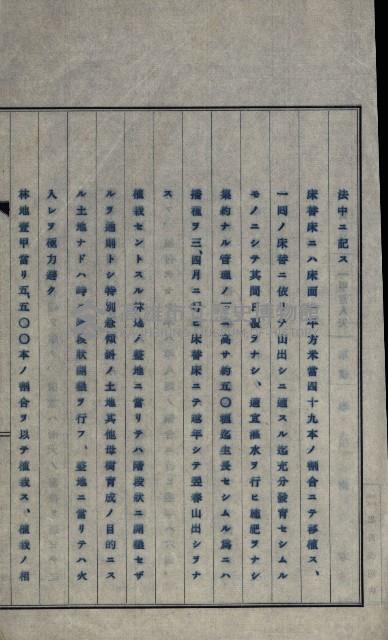 法中ニ記ス
床替床ニハ床面一平方米當四十九本ノ割合ニテ移植ス、
一囘ノ床替ニ依リテ山出シニ適スル迄充分發育セシムル
モノニシテ其間日覆ヲナシ、適宜灌水ヲ行ヒ施肥ヲナシ
集約ナル管理ノ下ニ高サ約五〇糎迄生長セシムル爲ニハ
播種ヲ三、四月ニ行ヒ床替床ニテ越年シテ翌春山出シヲナ
ス
植栽セントスル林地ノ整地ニ當リテハ階段狀ニ開墾セザ
ルヲ通則トシ特別急傾斜ノ土地其他母樹育成ノ目的ニス
ル土地ナドハ時ニ階段狀開墾ヲ行フ、整地ニ當リテハ火
入レヲ極力避ク
林地壹甲當リ五、五〇〇本ノ割合ヲ以テ植栽ス、植栽ノ相